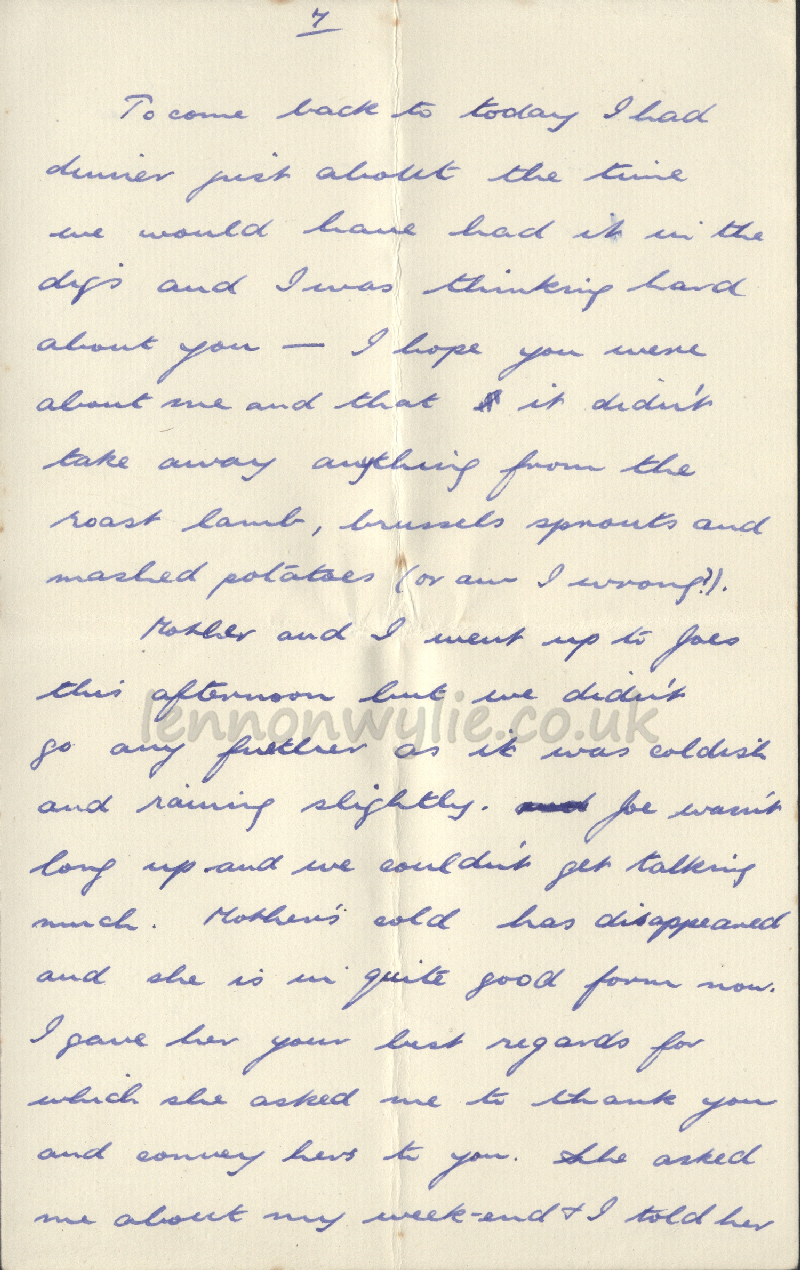 7
To come back to today I had
dinner just about the time
we would have had it in the
digs and I was thinking hard
about you — I hope you were
about me and that it didn't
take away anything from the
roast lamb, brussels sprouts and
mashed potatoes (or am I wrong?).
Mother and I went up to Joes
this afternoon but we didn't
lennonwylie.co.uk
go any further as it was coldish
and raining slightly. Joe wasn't
long up and we couldn't get talking
much. Mother's cold has disappeared
and she is in quite good form now.
I gave her your best regards for
which she asked me to thank you
and convey hers to you. She asked
me about my week-end & I told her